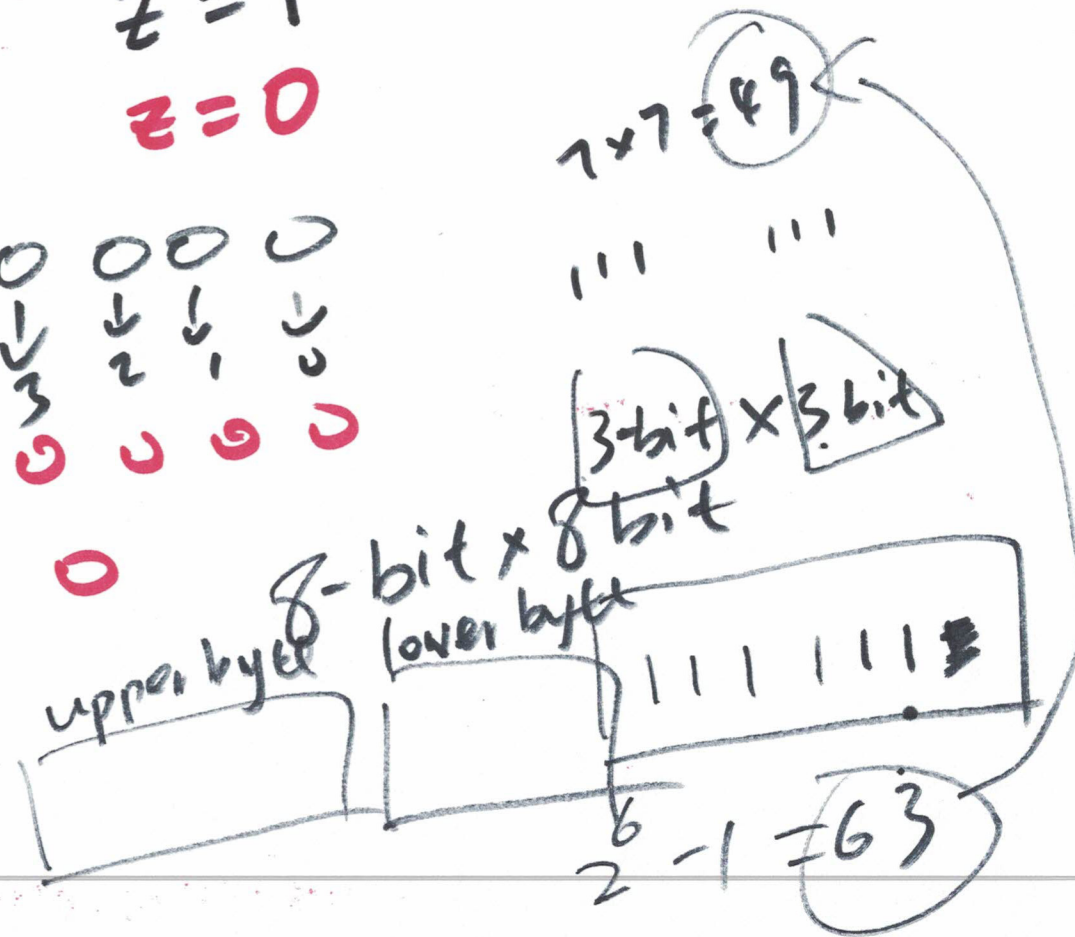 z = 1
z = 0
0 0 0 0
3 2 1 0
0 0 0 0
0
7 x 7 = 49
111 111
3-bit x 3 bit
8-bit x 8 bit
upper byte lower byte
111 111
2^6 - 1 = 63